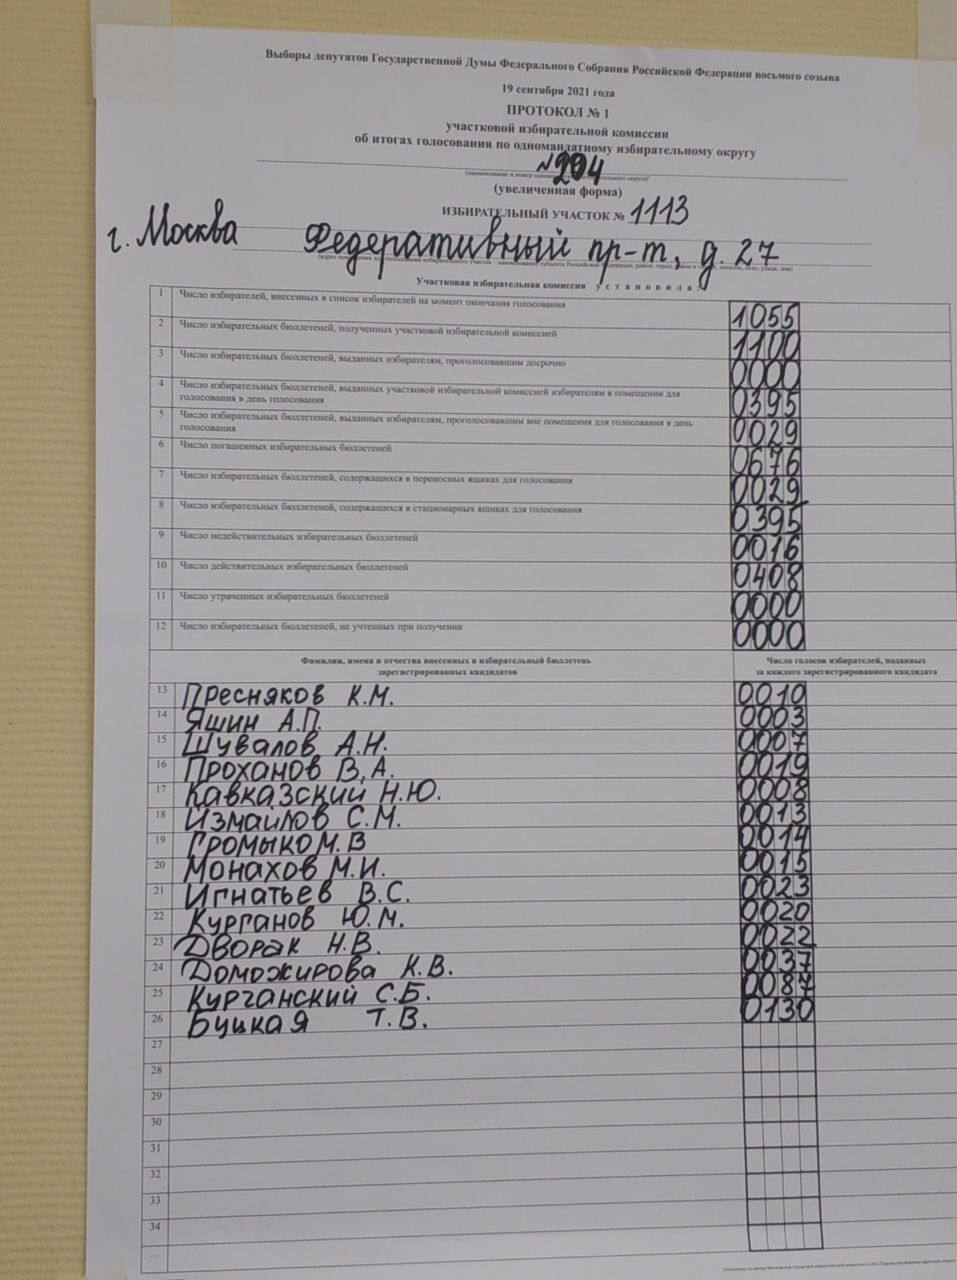 Выборы депутатов Государственной Думы Федерального Собрания Российской Федерации восьмого созыва
19 сентября 2021 года
ПРОТОКОЛ № 1
участковой избирательной комиссии
об итогах голосования по одномандатному избирательному округу
№204
(увеличенная форма)
ИЗБИРАТЕЛЬНЫЙ УЧАСТОК № 1113
г. Москва Федеративный пр-т, д. 27
Участковая избирательная комиссия установила:
1 Число избирателей, внесенных в список избирателей на момент окончания голосования 1055
2 Число избирательных бюллетеней, полученных участковой избирательной комиссией 1100
3 Число избирательных бюллетеней, выданных избирателям, проголосовавшим досрочно 0000
4 Число избирательных бюллетеней, выданных участковой избирательной комиссией избирателям в помещении для
голосования в день голосования 0395
5 Число избирательных бюллетеней, выданных избирателям, проголосовавшим вне помещения для голосования в день
голосования 0029
6 Число погашенных избирательных бюллетеней 0676
7 Число избирательных бюллетеней, содержащихся в переносных ящиках для голосования 0029
8 Число избирательных бюллетеней, содержащихся в стационарных ящиках для голосования 0395
9 Число недействительных избирательных бюллетеней 0016
10 Число действительных избирательных бюллетеней 0408
11 Число утраченных избирательных бюллетеней 0000
12 Число избирательных бюллетеней, не учтенных при получении 0000
Фамилии, имена и отчества внесенных в избирательный бюллетень
зарегистрированных кандидатов
Число голосов избирателей, поданных
за каждого зарегистрированного кандидата
13 Пресняков К.М. 0010
14 Яшин А.П. 0003
15 Шувалов А.Н. 0007
16 Проханов В.А. 0019
17 Кавказский Н.Ю. 0008
18 Измайлов С.М. 0013
19 Громыко М.В 0014
20 Монахов М.И. 0015
21 Игнатьев В.С. 0023
22 Курганов Ю.М. 0020
23 Дворак Н.В. 0022
24 Доможирова К.В. 0037
25 Курганский С.Б. 0087
26 Буцкая Т.В. 0130
27
28
29
30
31
32
33
34
...